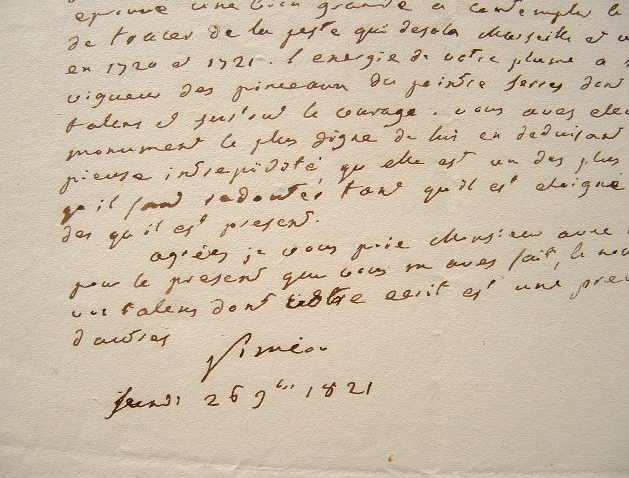 eprouvé une bien grande a contempler le
de toucer de la peste qui desola Marseille et
en 1720 et 1721. l'energie de votre plume a
vigueur des pinceaux du peintre serres dont
talens et surtout le courage. vous aves
monument le plus digne de lui en deduisant
pieuse intrepidité qu elle est un des plus
qu il faut redouter tant qu'il est eloigné
des qu'il est present.
agrées je vous prie Monsieur avec
pour le present que vous m aves fait, le
vos talens dont votre ecrit est une
d'autres
Siméon
jeudi 26 9bre 1821